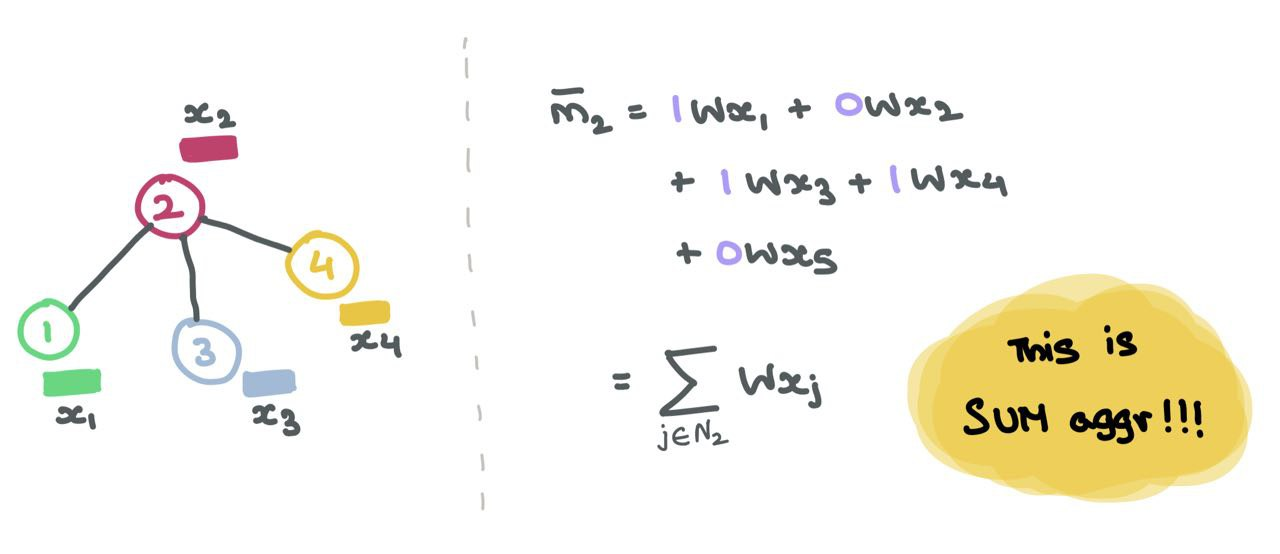 x₂
2
4
1
3
x₄
x₁
x₃
m̅₂ = 1Wx₁ + 0Wx₂
+ 1Wx₃ + 1Wx₄
+ 0Wx₅
= ∑ Wxⱼ
j∈N₂
This is
SUM aggr!!!